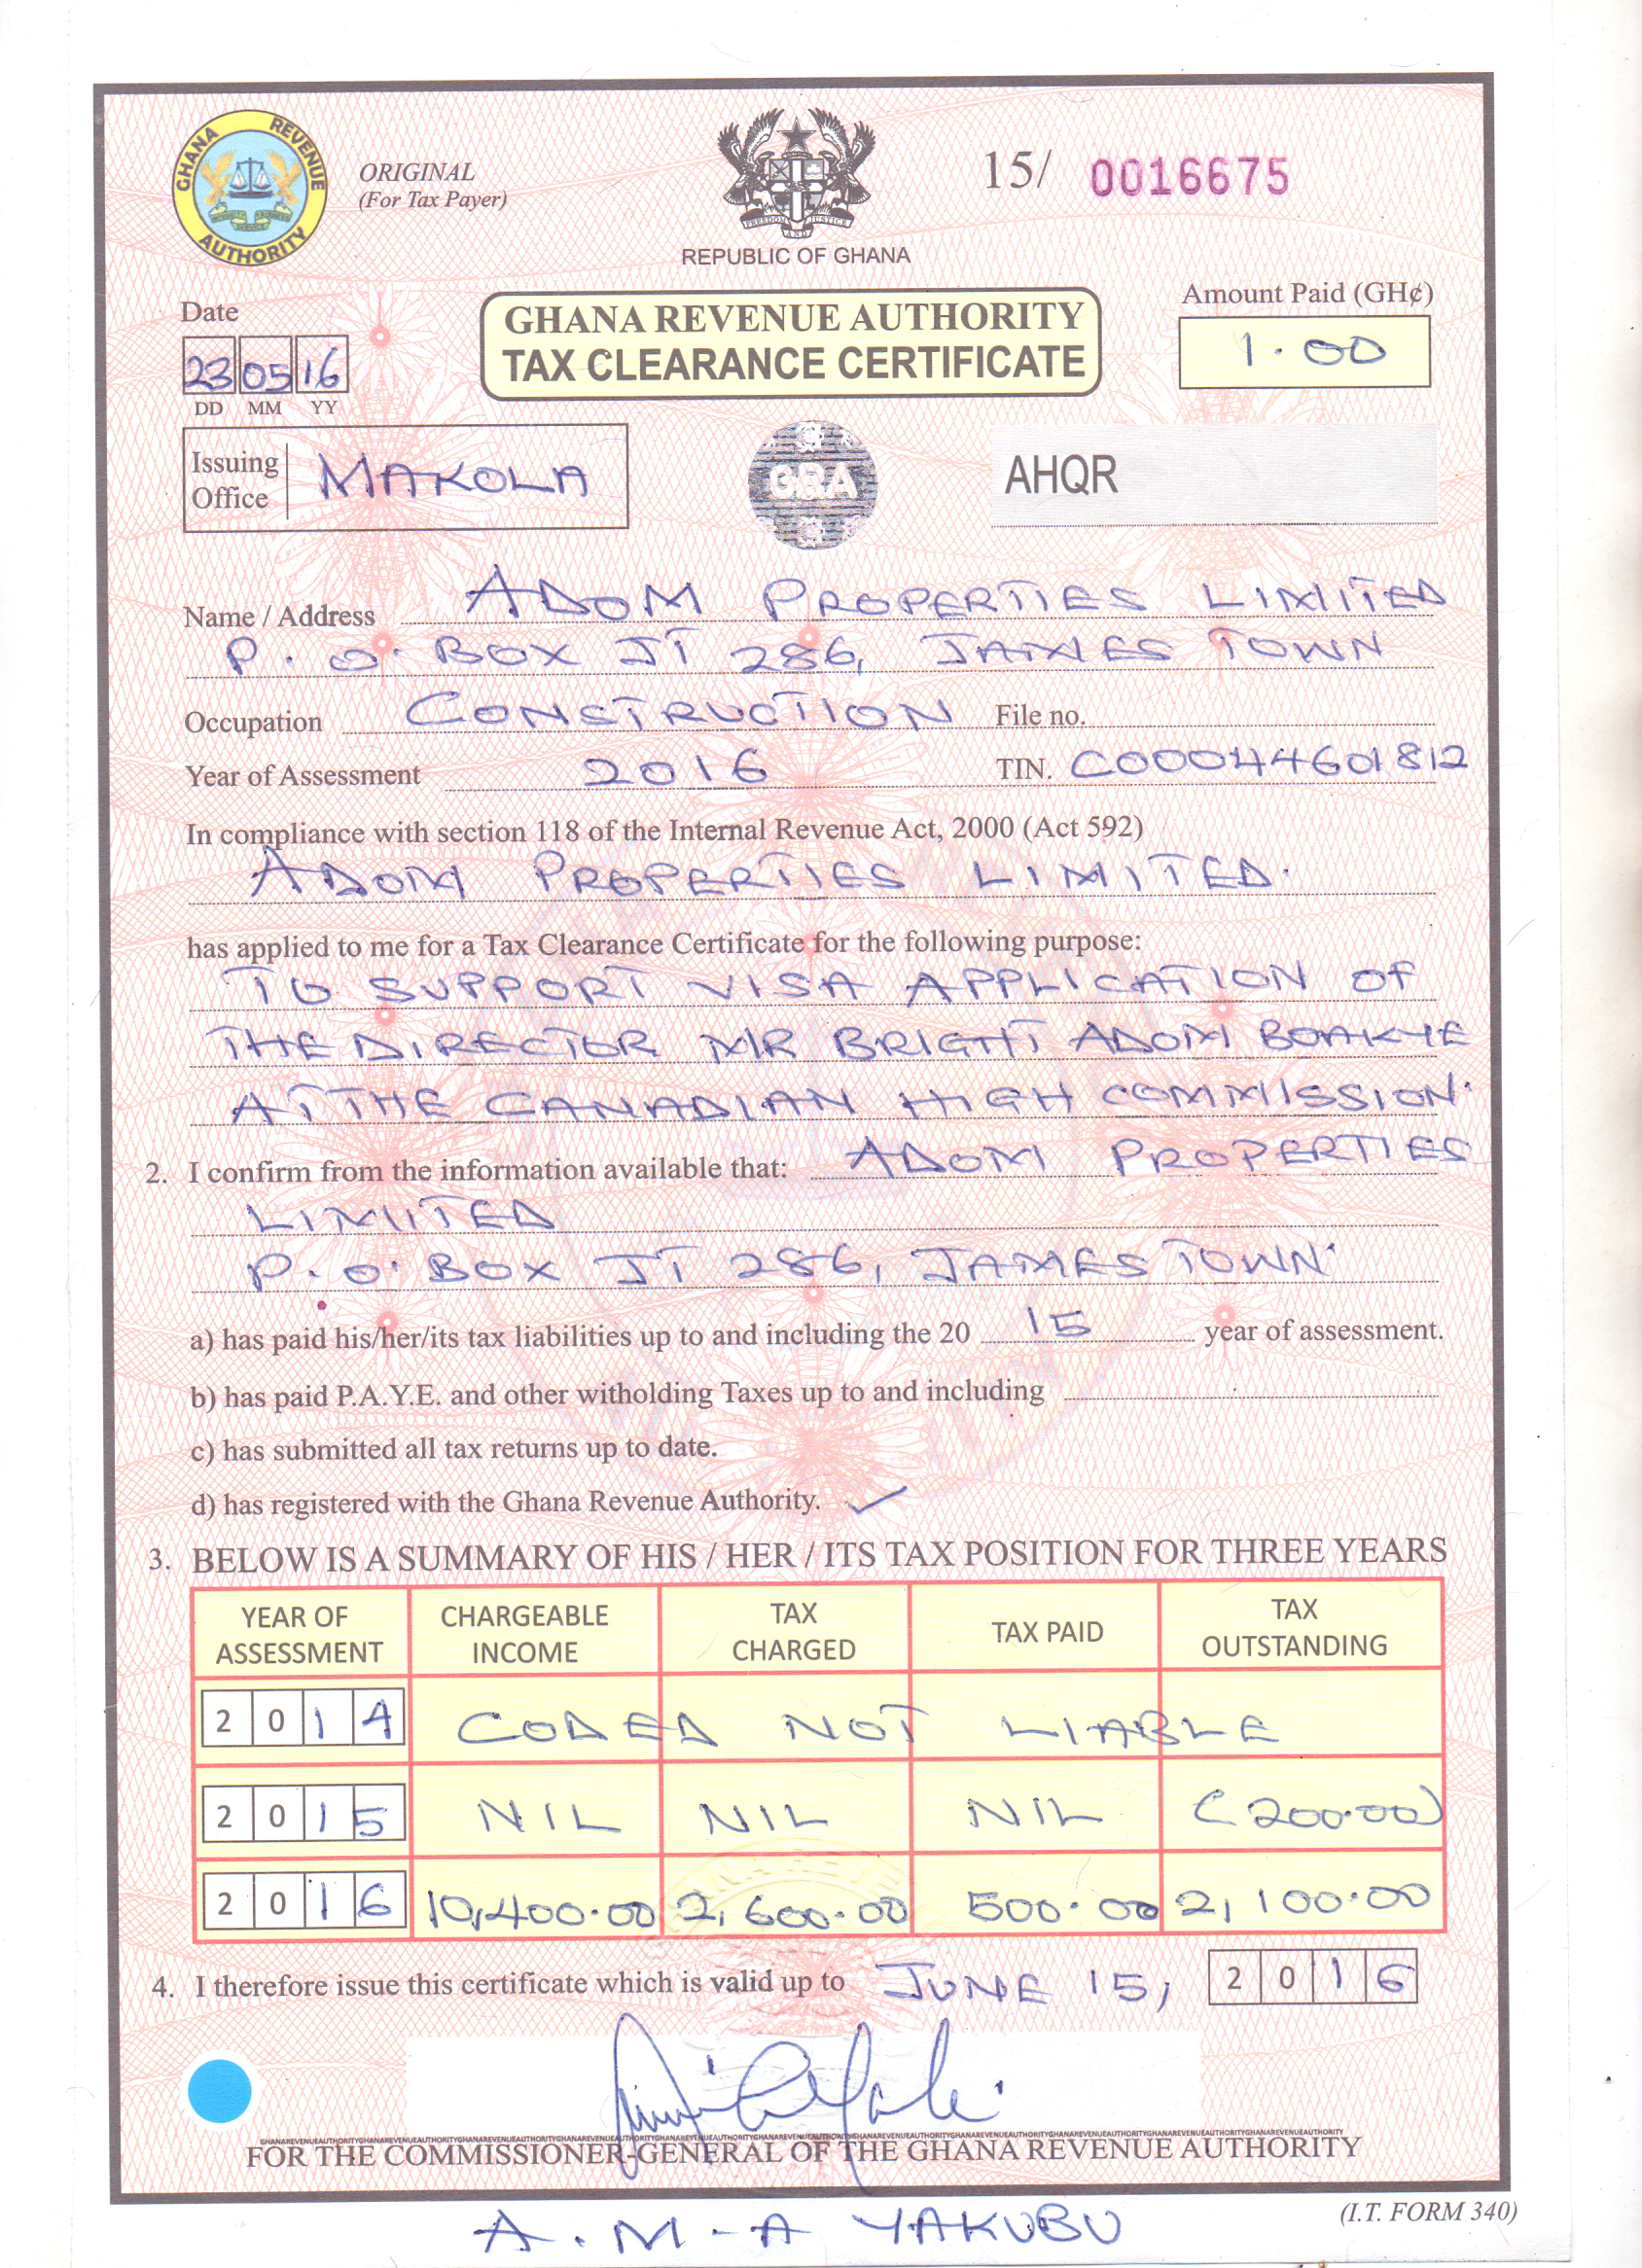 GHANA REVENUE AUTHORITY
ORIGINAL
(For Tax Payer)
FREEDOM AND JUSTICE
REPUBLIC OF GHANA
15/ 0016675
Date
23 05 16
DD MM YY
GHANA REVENUE AUTHORITY
TAX CLEARANCE CERTIFICATE
Amount Paid (GH¢)
1.00
Issuing
Office
MAKOLA
GRA
AHQR
Name / Address ADOM PROPERTIES LIMITED
P. O. BOX JT 286, JAMES TOWN
Occupation CONSTRUCTION File no.
Year of Assessment 2016 TIN. C000044601812
In compliance with section 118 of the Internal Revenue Act, 2000 (Act 592)
ADOM PROPERTIES LIMITED.
has applied to me for a Tax Clearance Certificate for the following purpose:
TO SUPPORT VISA APPLICATION OF
THE DIRECTOR MR BRIGHT ADOM BOAKYE
AT THE CANADIAN HIGH COMMISSION.
2. I confirm from the information available that: ADOM PROPERTIES
LIMITED
P. O. BOX JT 286, JAMES TOWN.
a) has paid his/her/its tax liabilities up to and including the 20 15 year of assessment.
b) has paid P.A.Y.E. and other witholding Taxes up to and including
c) has submitted all tax returns up to date.
d) has registered with the Ghana Revenue Authority. ✓
3. BELOW IS A SUMMARY OF HIS / HER / ITS TAX POSITION FOR THREE YEARS
YEAR OF ASSESSMENT CHARGEABLE INCOME TAX CHARGED TAX PAID TAX OUTSTANDING
2014 CODED NOT LIABLE
2015 NIL NIL NIL (200.00)
2016 10,400.00 2,600.00 500.00 2,100.00
4. I therefore issue this certificate which is valid up to JUNE 15, 2016
FOR THE COMMISSIONER-GENERAL OF THE GHANA REVENUE AUTHORITY
(I.T. FORM 340)
A. M-A YAKUBU